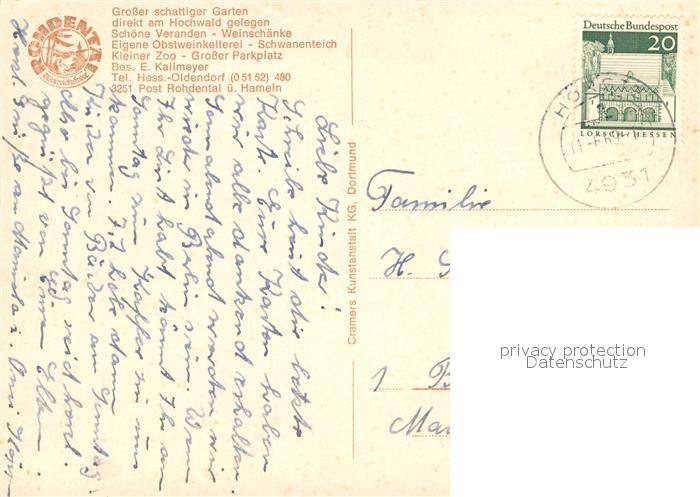 ROHDENTAL
Großer schattiger Garten
direkt am Hochwald gelegen
Schöne Veranden - Weinschänke
Eigene Obstweinkelterei - Schwanenteich
Kleiner Zoo - Großer Parkplatz
Bes. E. Kallmeyer
Tel. Hess.-Oldendorf (0 51 52) 480
3251 Post Rohdental ü. Hameln
Liebe Kinder!
Schreibe heut die letzte
Karte. Eure Karten haben
wir alle dankend erhalten.
Sonnabend abend werden wir
wieder in Berlin sein. Wenn
Ihr Lust habt könnt Ihr am
Sonntag zum Kaffee zu uns
kommen.
Kinder von am Sonntag.
Also bis Sonntag seid herzl.
gegrüßt von Euren Eltern
Grüße an u. Omi
Cramers Kunstanstalt KG, Dortmund
Deutsche Bundespost
20
LORSCH/HESSEN
4931
Familie
H.
1 B
privacy protection
Datenschutz